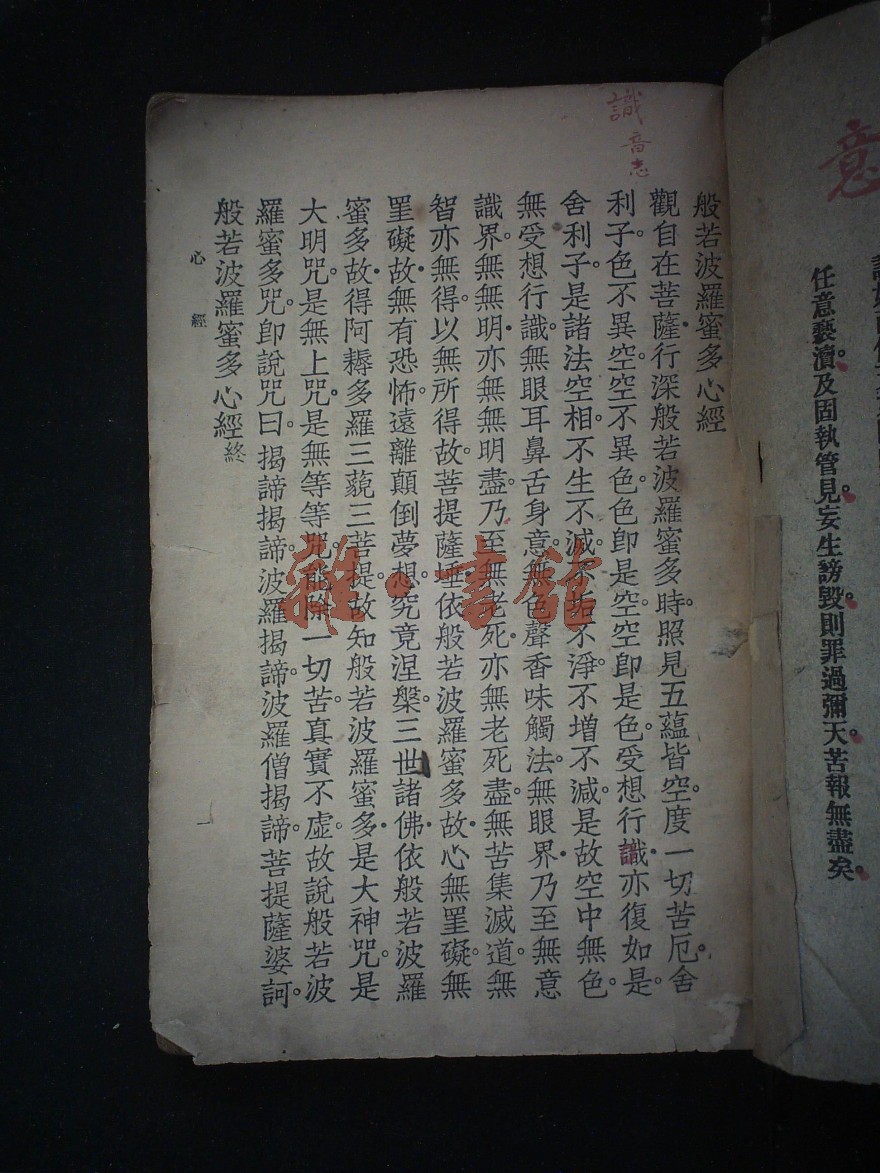 意
任意褻瀆。及固執管見。妄生謗毀。則罪過彌天。苦報無盡矣。
識
音志
般若波羅蜜多心經
觀自在菩薩·行深般若波羅蜜多時。照見五蘊皆空。度一切苦厄。舍
利子。色不異空。空不異色。色卽是空。空卽是色。受想行識·亦復如是。
舍利子。是諸法空相。不生不滅。不垢不淨。不增不減。是故空中無色。
無受想行識。無眼耳鼻舌身意。無色聲香味觸法。無眼界·乃至無意
識界。無無明·亦無無明盡。乃至無老死·亦無老死盡。無苦集滅道。無
智亦無得。以無所得故。菩提薩埵·依般若波羅蜜多故·心無罣礙。無
罣礙故·無有恐怖。遠離顛倒夢想。究竟涅槃。三世諸佛·依般若波羅
蜜多故·得阿耨多羅三藐三菩提。故知般若波羅蜜多·是大神咒。是
大明咒。是無上咒。是無等等咒。能除一切苦。真實不虛。故說般若波
羅蜜多咒。卽說咒曰。揭諦揭諦。波羅揭諦。波羅僧揭諦。菩提薩婆訶。
般若波羅蜜多心經終
心經
一
雜·書館